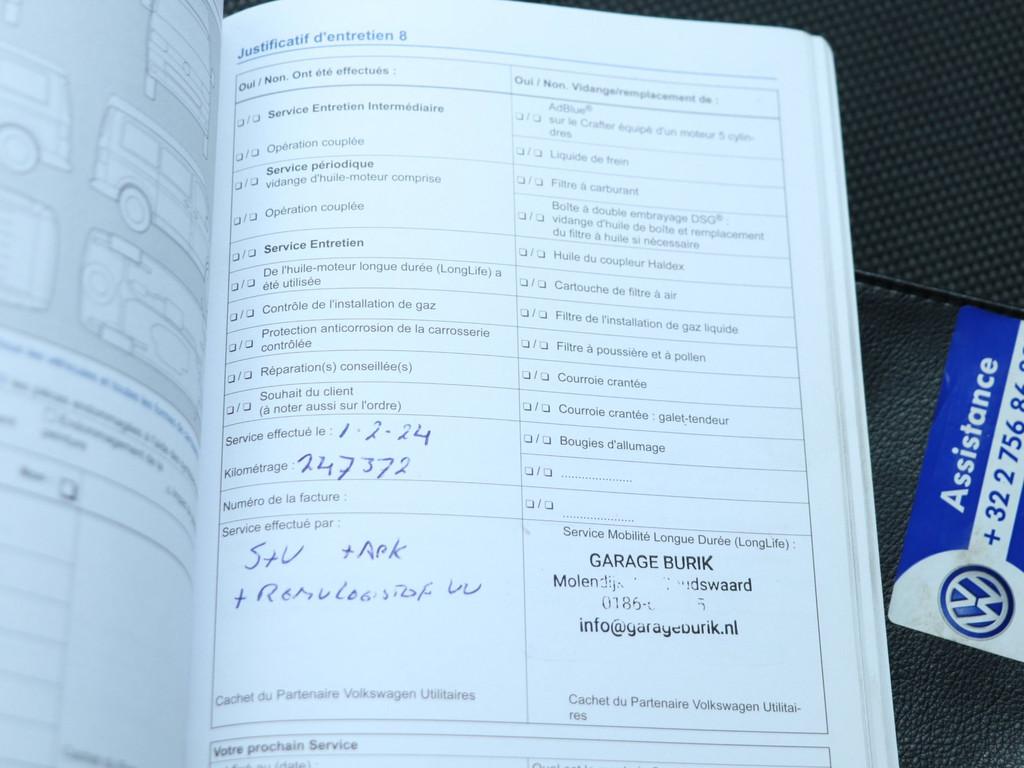 Justificatif d'entretien 8
Oui / Non. Ont été effectués :
❏ / ❏ Service Entretien Intermédiaire
❏ / ❏ Opération couplée
❏ / ❏ Service périodique
vidange d'huile-moteur comprise
❏ / ❏ Opération couplée
❏ / ❏ Service Entretien
❏ / ❏ De l'huile-moteur longue durée (LongLife) a
été utilisée
❏ / ❏ Contrôle de l'installation de gaz
❏ / ❏ Protection anticorrosion de la carrosserie
contrôlée
❏ / ❏ Réparation(s) conseillée(s)
❏ / ❏ Souhait du client
(à noter aussi sur l'ordre)
Service effectué le : 1-2-24
Kilométrage : 247372
Numéro de la facture :
Service effectué par :
S+V + APK
+ REMVLOEISTOF VV
Cachet du Partenaire Volkswagen Utilitaires
Oui / Non. Vidange/remplacement de :
❏ / ❏ AdBlue®
sur le Crafter équipé d'un moteur 5 cylin-
dres
❏ / ❏ Liquide de frein
❏ / ❏ Filtre à carburant
❏ / ❏ Boîte à double embrayage DSG® :
vidange d'huile de boîte et remplacement
du filtre à huile si nécessaire
❏ / ❏ Huile du coupleur Haldex
❏ / ❏ Cartouche de filtre à air
❏ / ❏ Filtre de l'installation de gaz liquide
❏ / ❏ Filtre à poussière et à pollen
❏ / ❏ Courroie crantée
❏ / ❏ Courroie crantée : galet-tendeur
❏ / ❏ Bougies d'allumage
❏ / ❏ .....................
❏ / ❏ .....................
Service Mobilité Longue Durée (LongLife) :
GARAGE BURIK
0186-
info@garageburik.nl
Cachet du Partenaire Volkswagen Utilitai-
res
Votre prochain Service
Assistance
+ 32 2 756 86